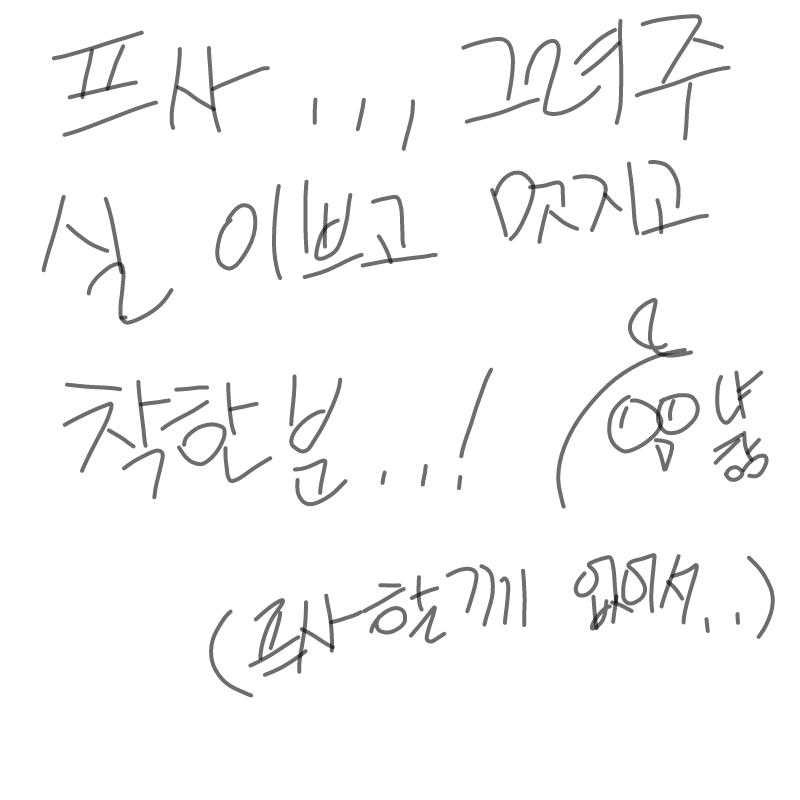 프사... 그려주
실 이쁘고 멋지고
착한분..!
(프사할게 없어서..)